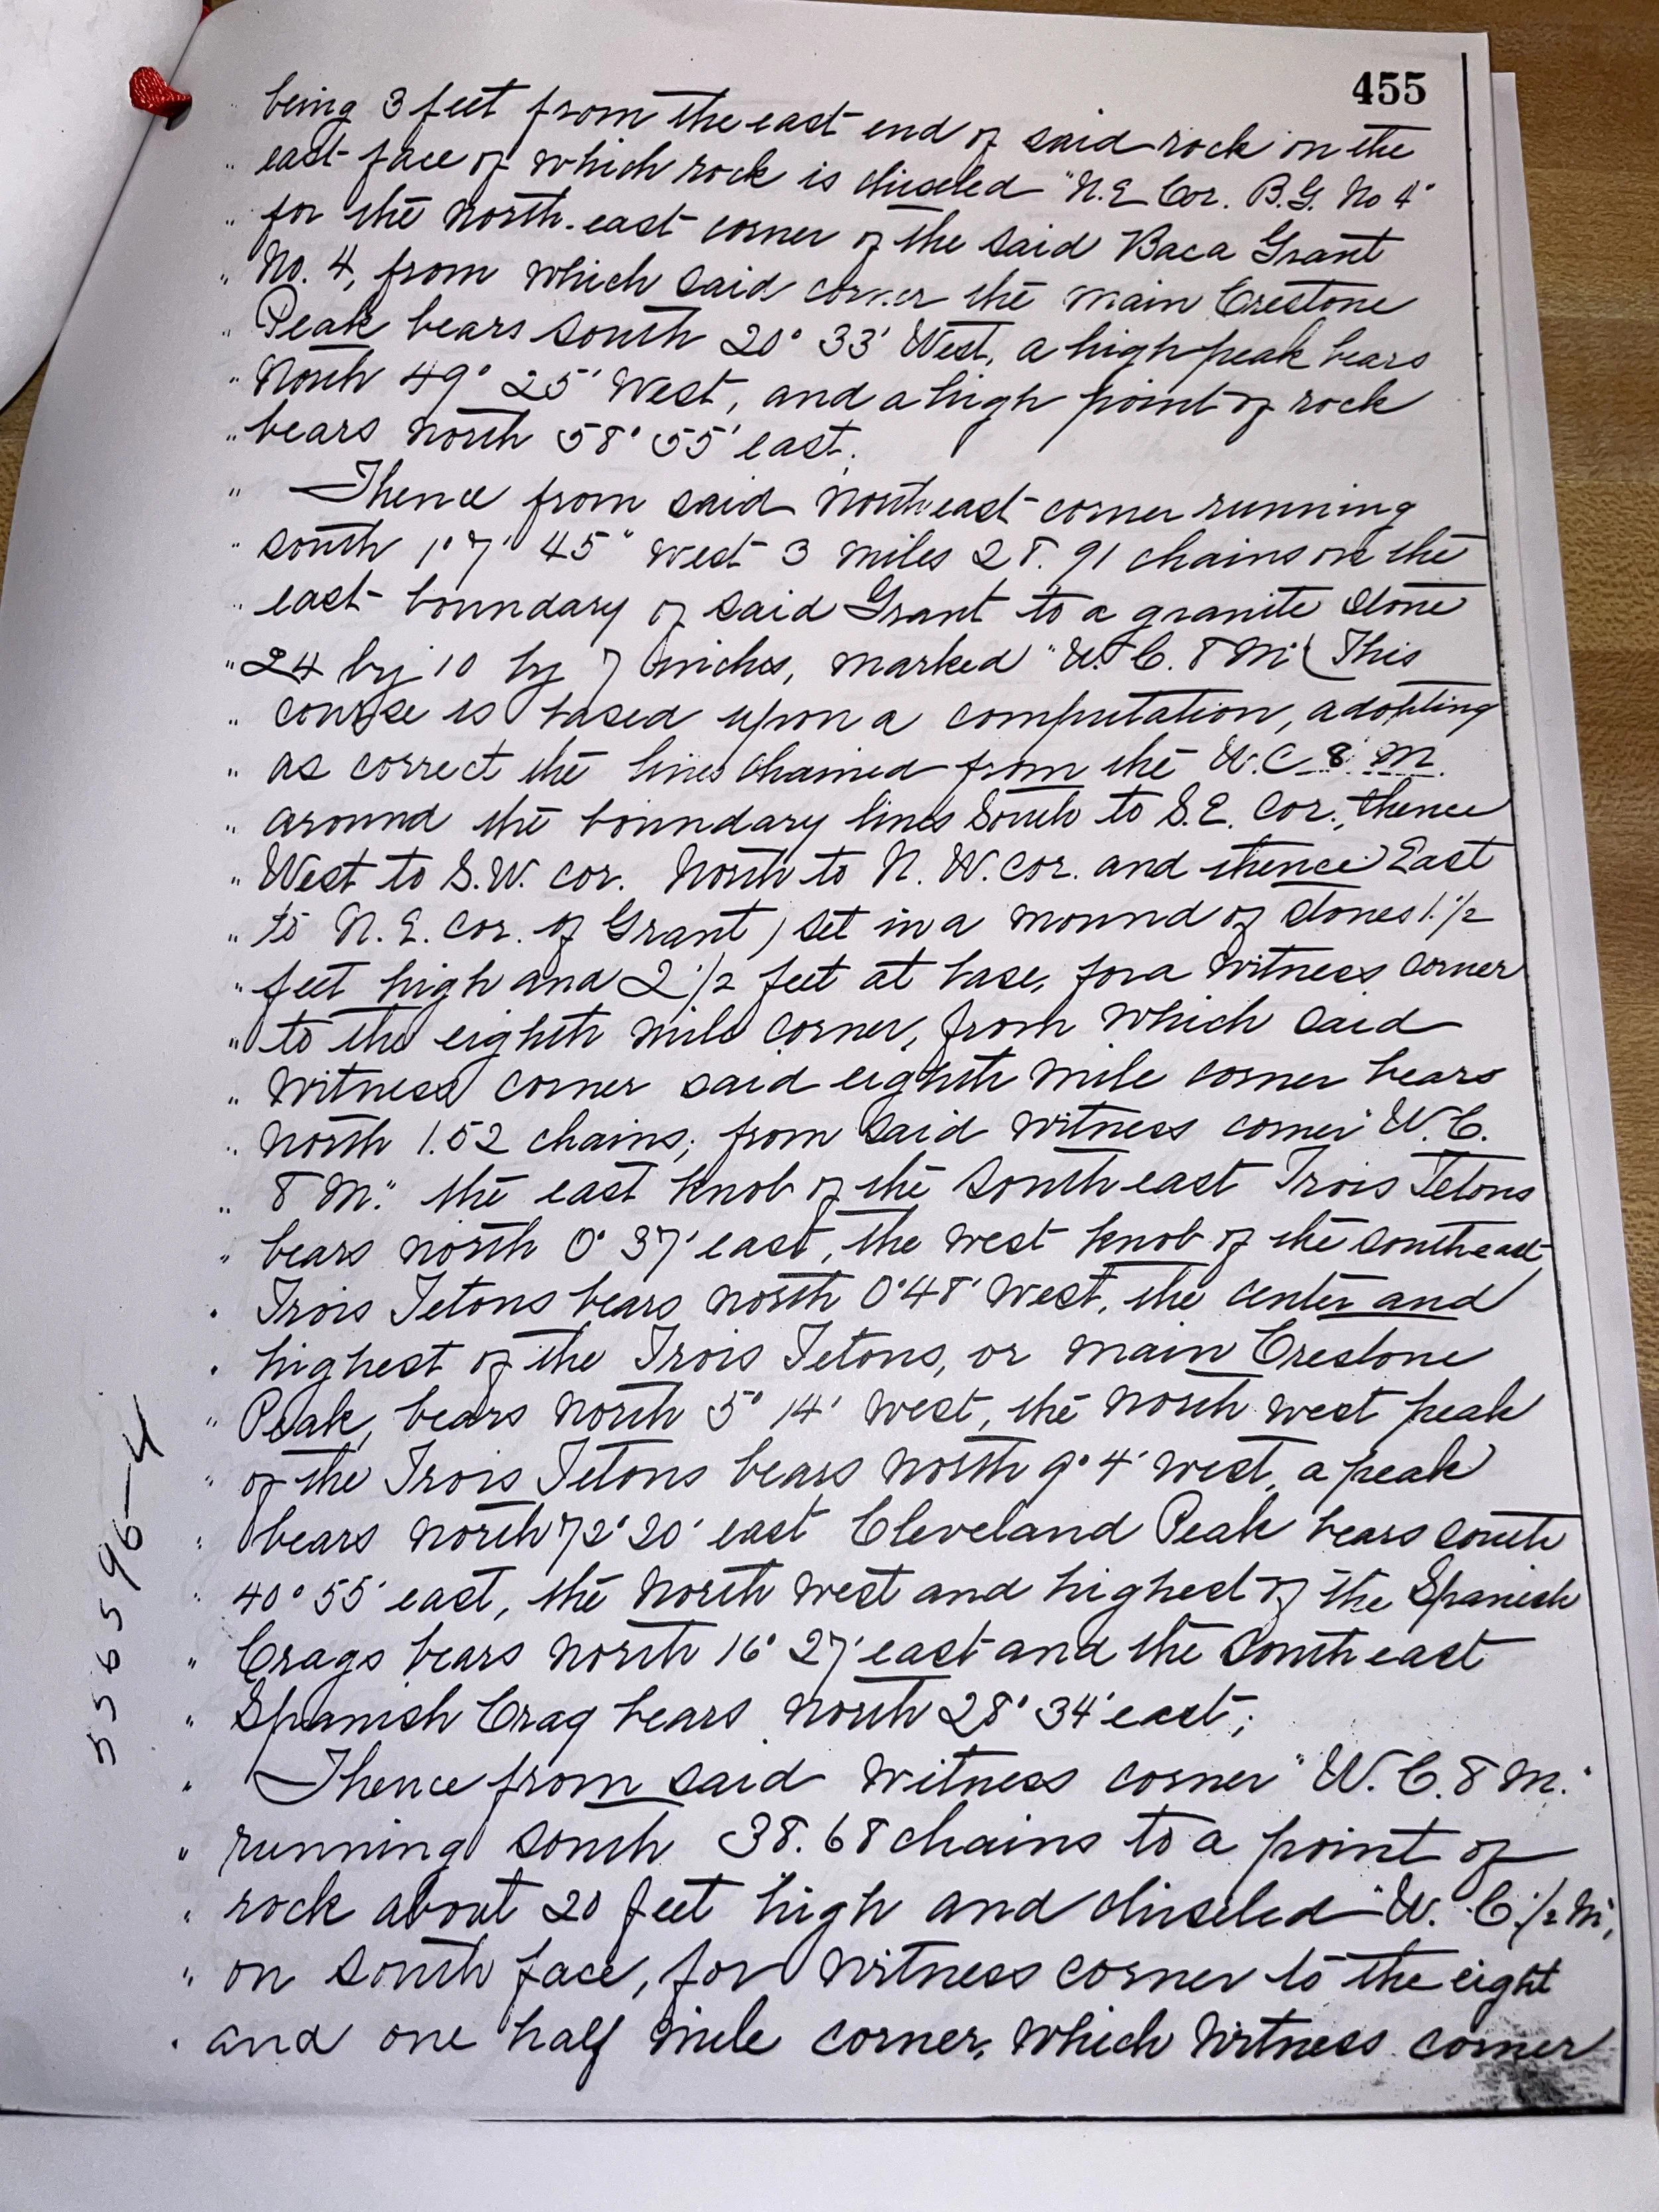 455
" being 3 feet from the east end of said rock on the
" east face of which rock is chiseled "N.E Cor. B.G. No 4"
" for the north-east corner of the said Baca Grant
" No. 4, from which said corner the main Crestone
" Peak bears South 20° 33' West, a high peak bears
" North 49° 25' West, and a high point of rock
" bears north 58° 55' east.
" Thence from said northeast corner running
" south 1° 7' 45" west 3 miles 28.91 chains on the
" east boundary of said Grant to a granite stone
" 24 by 10 by 7 inches, marked "W.C. 8 M" (This
" course is based upon a computation, adopting
" as correct the lines chained from the W.C 8 M.
" around the boundary lines South to S.E. Cor., thence
" West to S.W. cor. North to N.W. cor. and thence East
" to N.E. cor. of Grant) set in a mound of stones 1 1/2
" feet high and 2 1/2 feet at base, for a witness corner
" to the eighth mile corner, from which said
" witness corner said eighth mile corner bears
" north 1.52 chains; from said witness corner "W.C.
" 8 M." the east knob of the South east Trois Tetons
" bears north 0° 37' east, the west knob of the southeast
" Trois Tetons bears north 0° 48' west, the center and
" highest of the Trois Tetons, or main Crestone
" Peak, bears north 5° 14' west, the north west peak
" of the Trois Tetons bears north 9° 4' west, a peak
" bears north 72° 20' east Cleveland Peak bears south
" 40° 55' east, the north west and highest of the Spanish
" Crags bears north 16° 27' east and the South east
" Spanish Crag bears north 28° 34' east;
" Thence from said witness corner "W.C. 8 M."
" running south 38.68 chains to a point of
" rock about 20 feet high and chiseled "W.C. 1/2 M,
" on south face, for witness corner to the eight
" and one half mile corner, which witness corner
556596-4